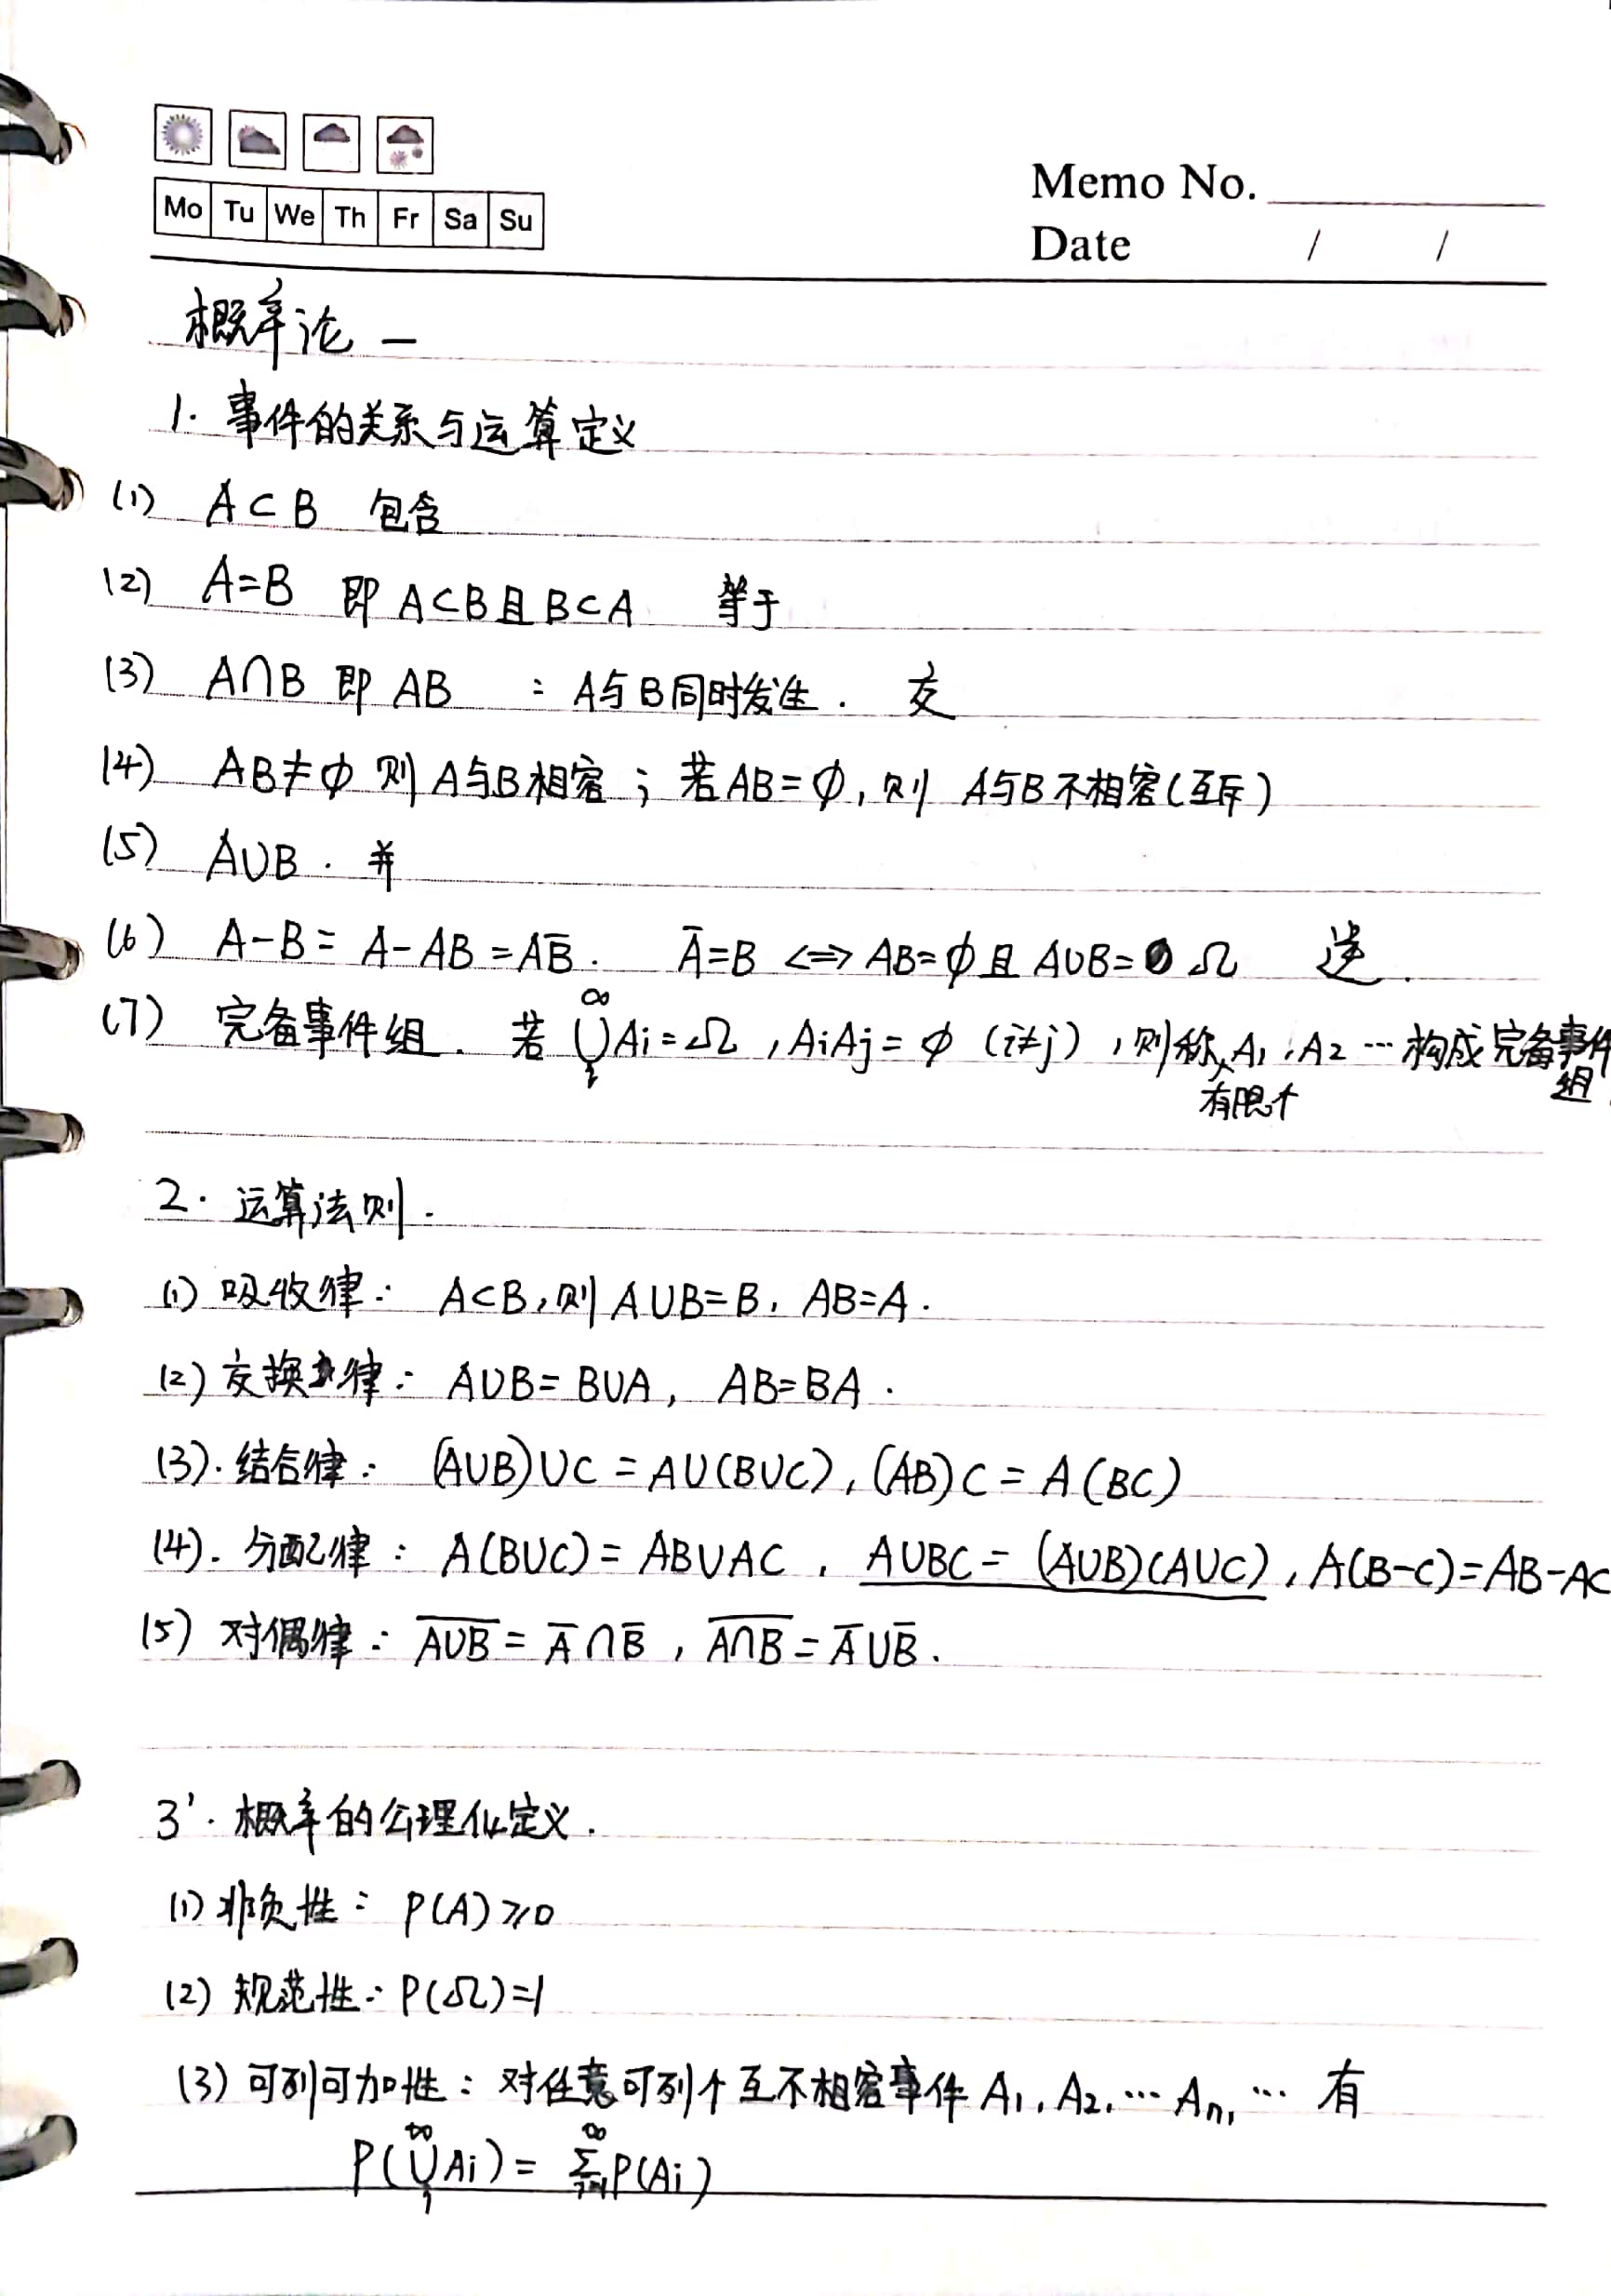 Mo Tu We Th Fr Sa Su
Memo No.
Date / /
概率论 一
1. 事件的关系与运算定义
(1) A⊂B 包含
(2) A=B 即 A⊂B且B⊂A 等于
(3) A∩B 即 AB : A与B同时发生. 交
(4) AB≠φ 则 A与B相容; 若AB=φ, 则 A与B不相容(互斥)
(5) A∪B. 并
(6) A-B= A-AB=AB̅. A̅=B <=> AB=φ且 A∪B= Ω
(7) 完备事件组. 若 ∞∪1 Ai=Ω, AiAj=φ (i≠j), 则称 A1, A2 … 构成完备事件
有限个 组
2. 运算法则.
(1) 吸收律: A⊂B, 则 A∪B=B, AB=A.
(2) 交换律: A∪B= B∪A, AB=BA.
(3). 结合律: (A∪B)∪C = A∪(B∪C), (AB)C = A(BC)
(4). 分配律: A(B∪C)= AB∪AC, A∪BC = (A∪B)(A∪C), A(B-C)=AB-AC
(5) 对偶律: A̅∪̅B̅ = A̅ ∩ B̅, A̅∩̅B̅ = A̅ ∪ B̅.
3'. 概率的公理化定义.
(1) 非负性: P(A)≥0
(2) 规范性: P(Ω)=1
(3) 可列可加性: 对任意可列个互不相容事件 A1, A2, … An, … 有
P(∞∪1 Ai) = ∞Σi=1 P(Ai)